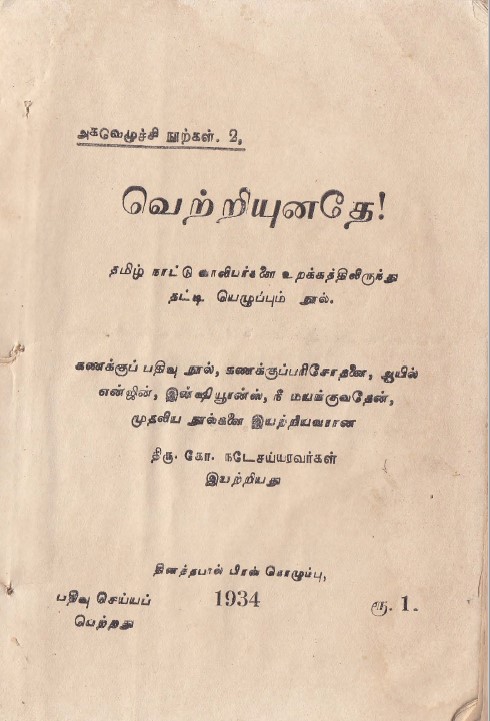 அகவெழுச்சி நூற்கள். 2,
வெற்றியுனதே!
தமிழ் நாட்டு வாலிபர்களை உறக்கத்திலிருந்து
தட்டி யெழுப்பும் நூல்.
கணக்குப் பதிவு நூல், கணக்குப்பரிசோதனை, ஆயில்
என்ஜின், இன்ஷியூரன்ஸ், நீ மயங்குவதேன்,
முதலிய நூல்களை இயற்றியவரான
திரு. கோ. நடேசய்யரவர்கள்
இயற்றியது
தினத்தபால் பிரஸ் கொழும்பு,
பதிவு செய்யப்
பெற்றது
1934
ரூ. 1.